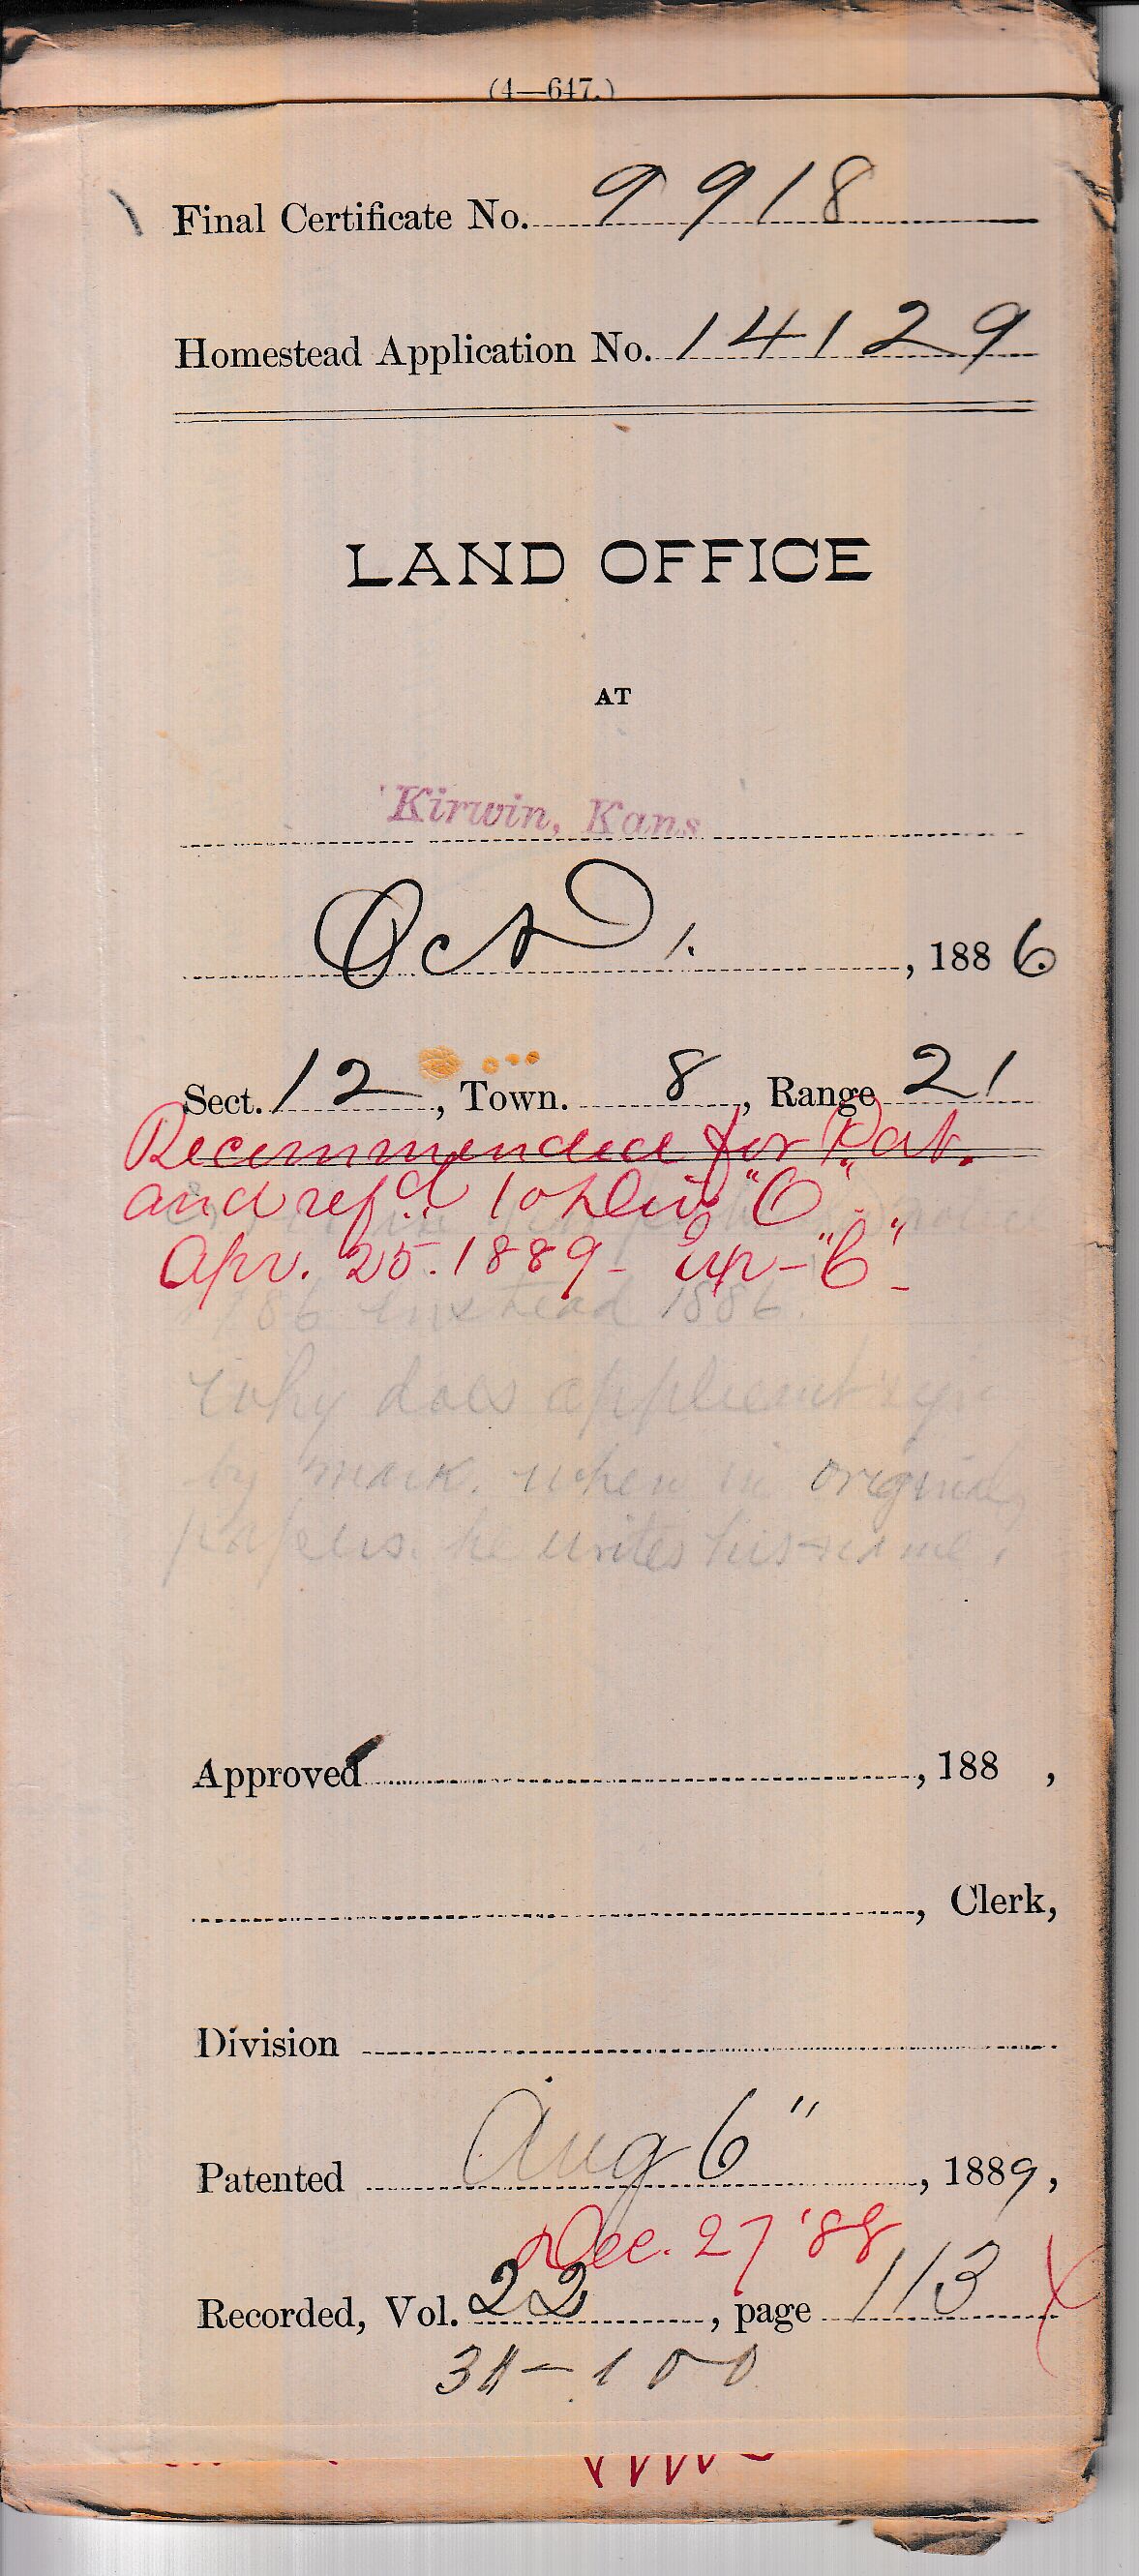 (4—647.)
Final Certificate No. 9918
Homestead Application No. 14129
LAND OFFICE
AT
Kirwin, Kans
Oct 1. , 1886.
Sect. 12 , Town. 8 , Range 21
Recommended for Pat.
and ref'd to Div "C"
Apr. 25. 1889 -
instead 1886.
Why does applicant sign
by mark. when in original
papers. he writes his name.
Approved , 188 ,
, Clerk,
Division
Patented Aug 6" , 1889,
Dec. 27 '88
Recorded, Vol. 22 , page 113